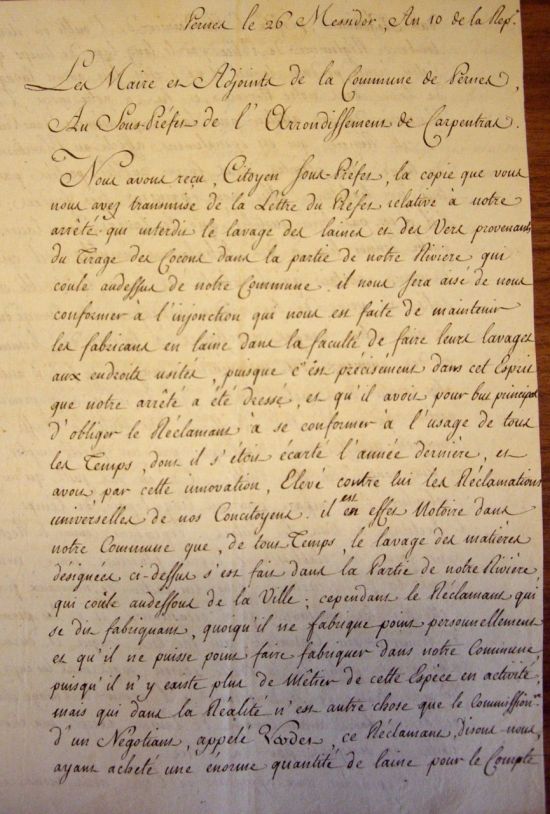 Pernes le 26 Messidor, An 10 de la Rep.
Les Maire et Adjoints de la Commune de Pernes,
Au Sous-Préfet de l'Arrondissement de Carpentras.
Nous avons reçu, Citoyen Sous-Préfet, la copie que vous
nous avez transmise de la Lettre du Préfet relative à notre
arrêté qui interdit le lavage des laines et des Vers provenants
du Tirage des Cocons dans la partie de notre Riviere qui
coule audessus de notre Commune. il nous sera aisé de nous
conformer à l'injonction qui nous est faite de maintenir
les fabricans en laine dans la faculté de faire leurs lavages
aux endroits usités, puisque c'est précisément dans cet Esprit
que notre arrêté a été dressé, et qu'il avoit pour but principal
d'obliger le Réclamant à se conformer à l'usage de tous
les Temps, dont il s'étoit écarté l'année dernière, et
avoit par cette innovation, Elevé contre lui les Réclamations
universelles de nos Concitoyens. il est en effet Notoire dans
notre Commune que, de tous Temps, le lavage des matières
désignées ci-dessus s'est fait dans la Partie de notre Rivière
qui coûle audessous de la Ville; cependant le Réclamant qui
se dit fabriquant, quoiqu'il ne fabrique point personnellement
et qu'il ne puisse point faire fabriquer dans notre Commune,
puisqu'il n'y existe plus de Métier de cette Espèce en activité,
mais qui dans la Réalité n'est autre chose que le Commission.re
d'un Negotiant, appelé Verdet, ce Réclamant, disons nous,
ayant acheté une enorme quantité de laine pour le Compte